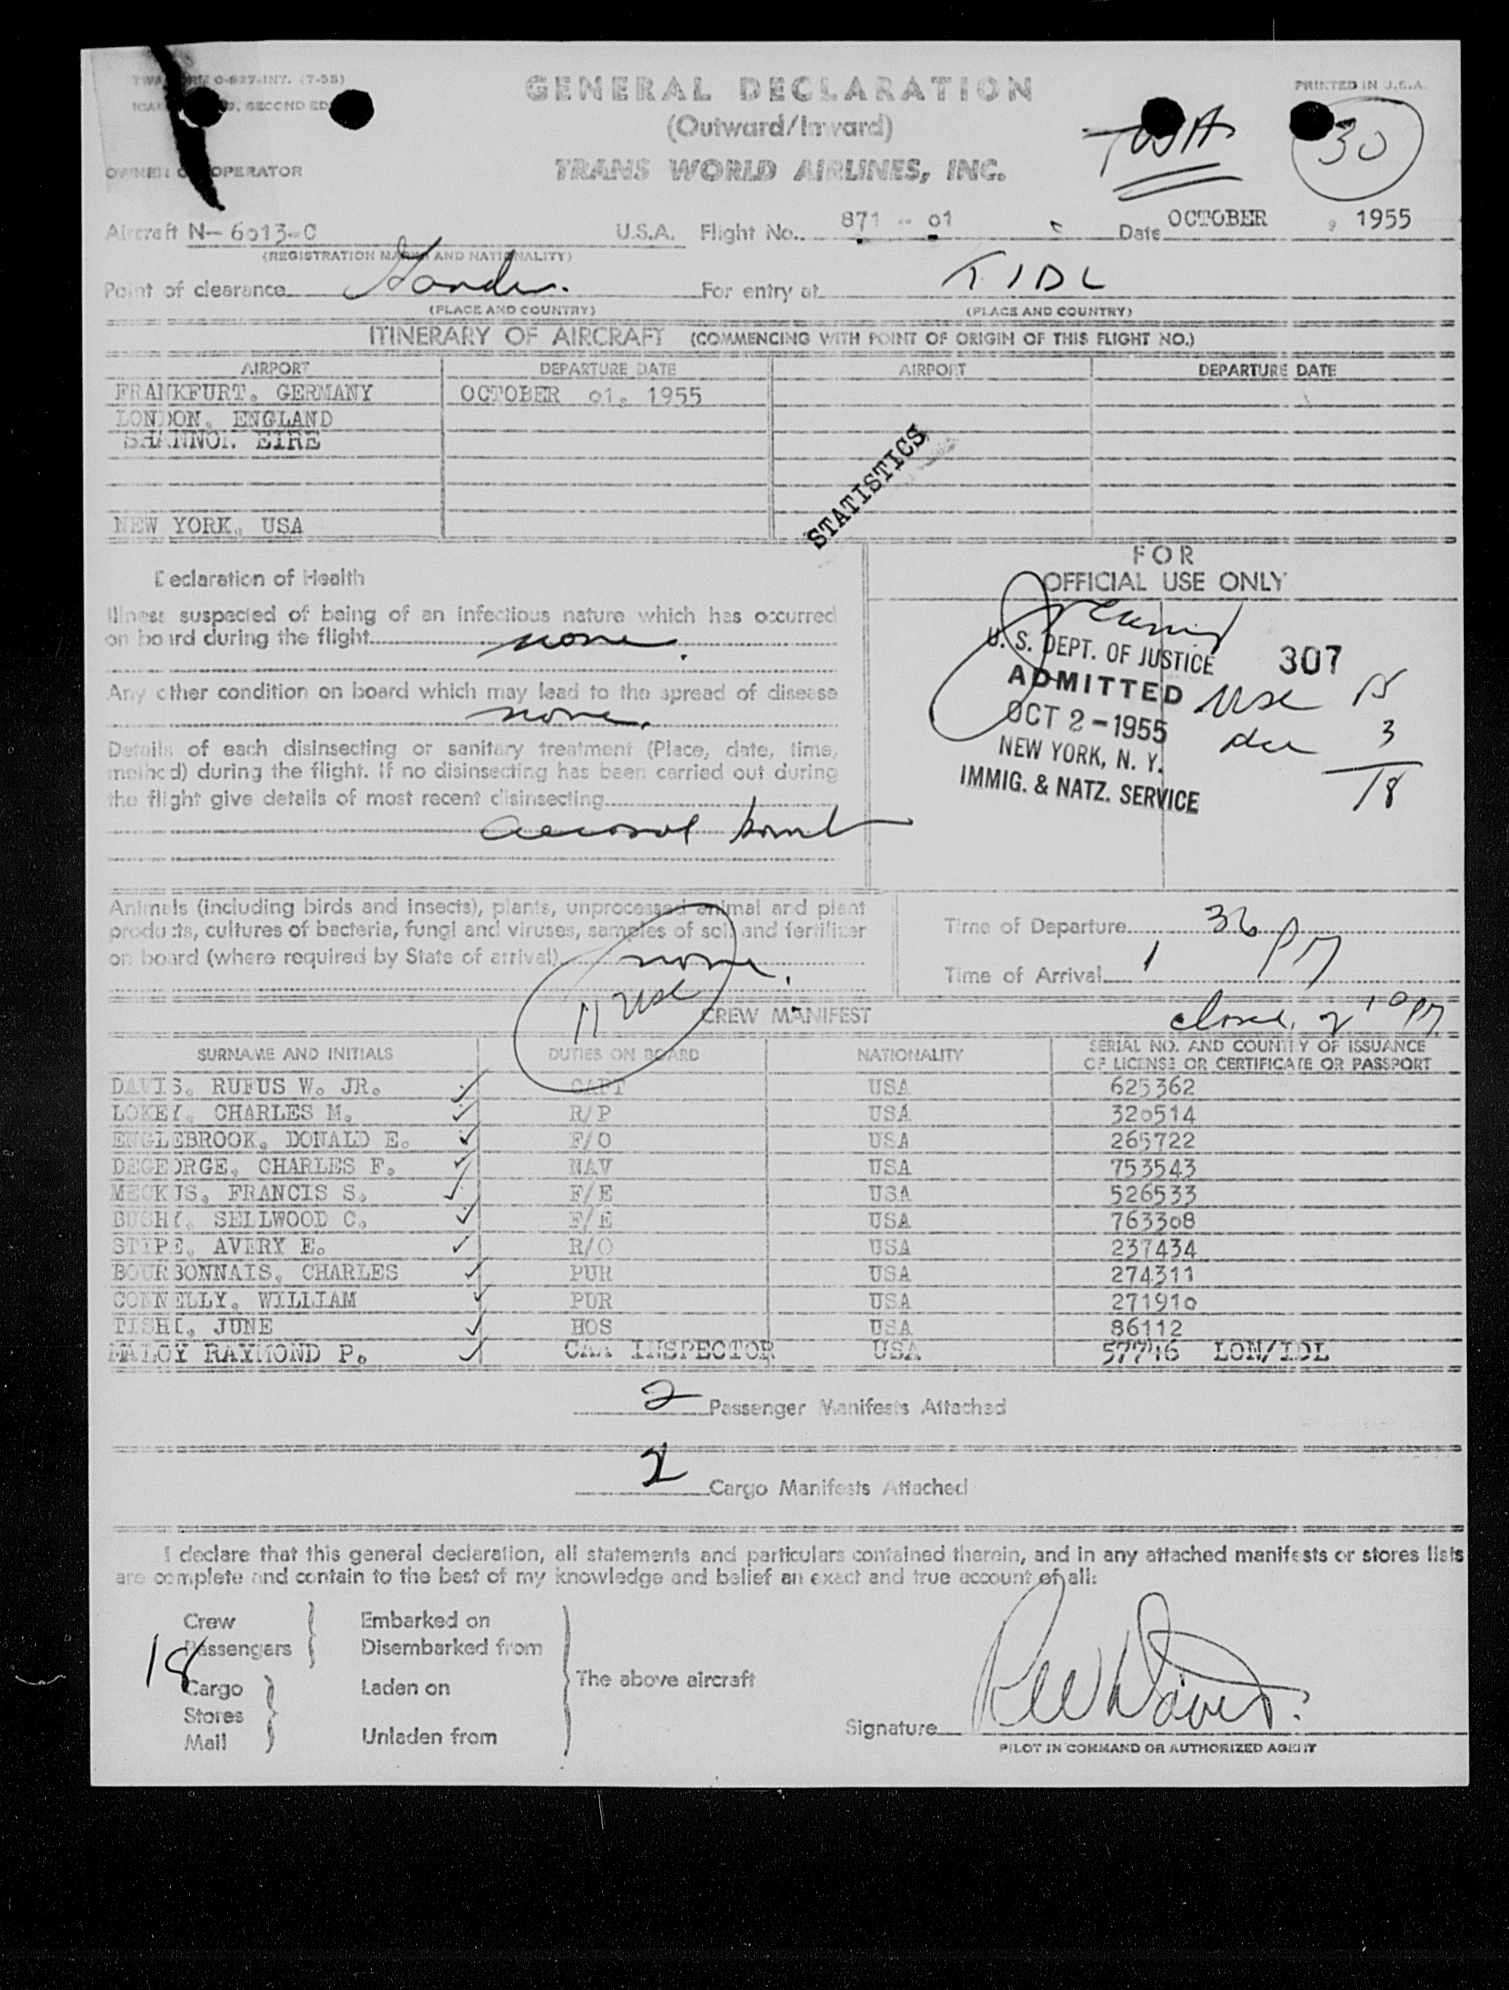 TWA FORM O-827-INT. (7-55)
SECOND ED.
PRINTED IN U.S.A.
GENERAL DECLARATION
(Outward/Inward)
TRANS WORLD AIRLINES, INC.
TWA
30
OWNER OR OPERATOR
Aircraft N-6013-C U.S.A. Flight No. 871 -- 01 Date OCTOBER , 1955
(REGISTRATION MARKS AND NATIONALITY)
Point of clearance Gander. For entry at IDL
(PLACE AND COUNTRY) (PLACE AND COUNTRY)
ITINERARY OF AIRCRAFT (COMMENCING WITH POINT OF ORIGIN OF THIS FLIGHT NO.)
AIRPORT DEPARTURE DATE AIRPORT DEPARTURE DATE
FRANKFURT, GERMANY OCTOBER 01, 1955
LONDON, ENGLAND
SHANNON, EIRE
NEW YORK, USA
STATISTICS
Declaration of Health
Illness suspected of being of an infectious nature which has occurred
on board during the flight none.
Any other condition on board which may lead to the spread of disease
none.
Details of each disinsecting or sanitary treatment (Place, date, time,
method) during the flight. If no disinsecting has been carried out during
the flight give details of most recent disinsecting
aerosol bomb
FOR
OFFICIAL USE ONLY
U. S. DEPT. OF JUSTICE
307
ADMITTED
OCT 2-1955
NEW YORK, N. Y.
IMMIG. & NATZ. SERVICE
Use 15
3
18
Animals (including birds and insects), plants, unprocessed animal and plant
products, cultures of bacteria, fungi and viruses, samples of soil and fertilizer
on board (where required by State of arrival) none.
11 USC
Time of Departure 36
Time of Arrival 1 PM
CREW MANIFEST
SURNAME AND INITIALS DUTIES ON BOARD NATIONALITY SERIAL NO. AND COUNTRY OF ISSUANCE
OF LICENSE OR CERTIFICATE OR PASSPORT
DAVIS, RUFUS W. JR. CAPT USA 625362
LOKEY, CHARLES M. R/P USA 320514
ENGLEBROOK, DONALD E. F/O USA 265722
DEGEORGE, CHARLES F. NAV USA 753543
MECKUS, FRANCIS S. F/E USA 526533
BUSHY, SELLWOOD C. F/E USA 763308
STIPE, AVERY E. R/O USA 237434
BOURBONNAIS, CHARLES PUR USA 274311
CONNELLY, WILLIAM PUR USA 271910
TISHI, JUNE HOS USA 86112
MALOY RAYMOND P. CAA INSPECTOR USA 57746 LON/IDL
2 Passenger Manifests Attached
2 Cargo Manifests Attached
I declare that this general declaration, all statements and particulars contained therein, and in any attached manifests or stores lists
are complete and contain to the best of my knowledge and belief an exact and true account of all:
Crew Embarked on
Passengers Disembarked from
18
The above aircraft
Cargo Laden on
Stores
Mail Unladen from
Signature R W Davis Jr.
PILOT IN COMMAND OR AUTHORIZED AGENT